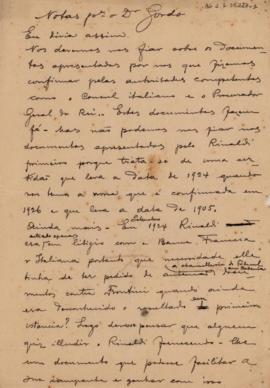 Notas p.ª o Dr Gordo
Eu diria assim.
Nos devemos nos fiar sobre os documen
tos apresentados por nos que fizemos
confirmar pelas autoridades competentes
como o Consul italiano e o Procurador
Geral do Rei... Estes documentos fazem
fé. Mas não podemos nos fiar nos
documentos apresentados pelo Rinaldi
primeiro porque trata-se de uma cer
tidão que leva a data de 1924 quando
nos temos a nossa que é confirmada em
1926 e que leva a data de 1905.
Ainda mais - Em 1924 Rinaldi
em litigio com a Banca Francesa
e Italiana portanto que necessidade elle
tinha de ter pedido
contra Frontini quando ainda
era desconhecido o resultado em primeira
istancia? Logo devemos pensar que alguem
quiz illudir o Rinaldi fornecendo-lhe
um documento que podesse facilitar a
sua e ganhar com isso